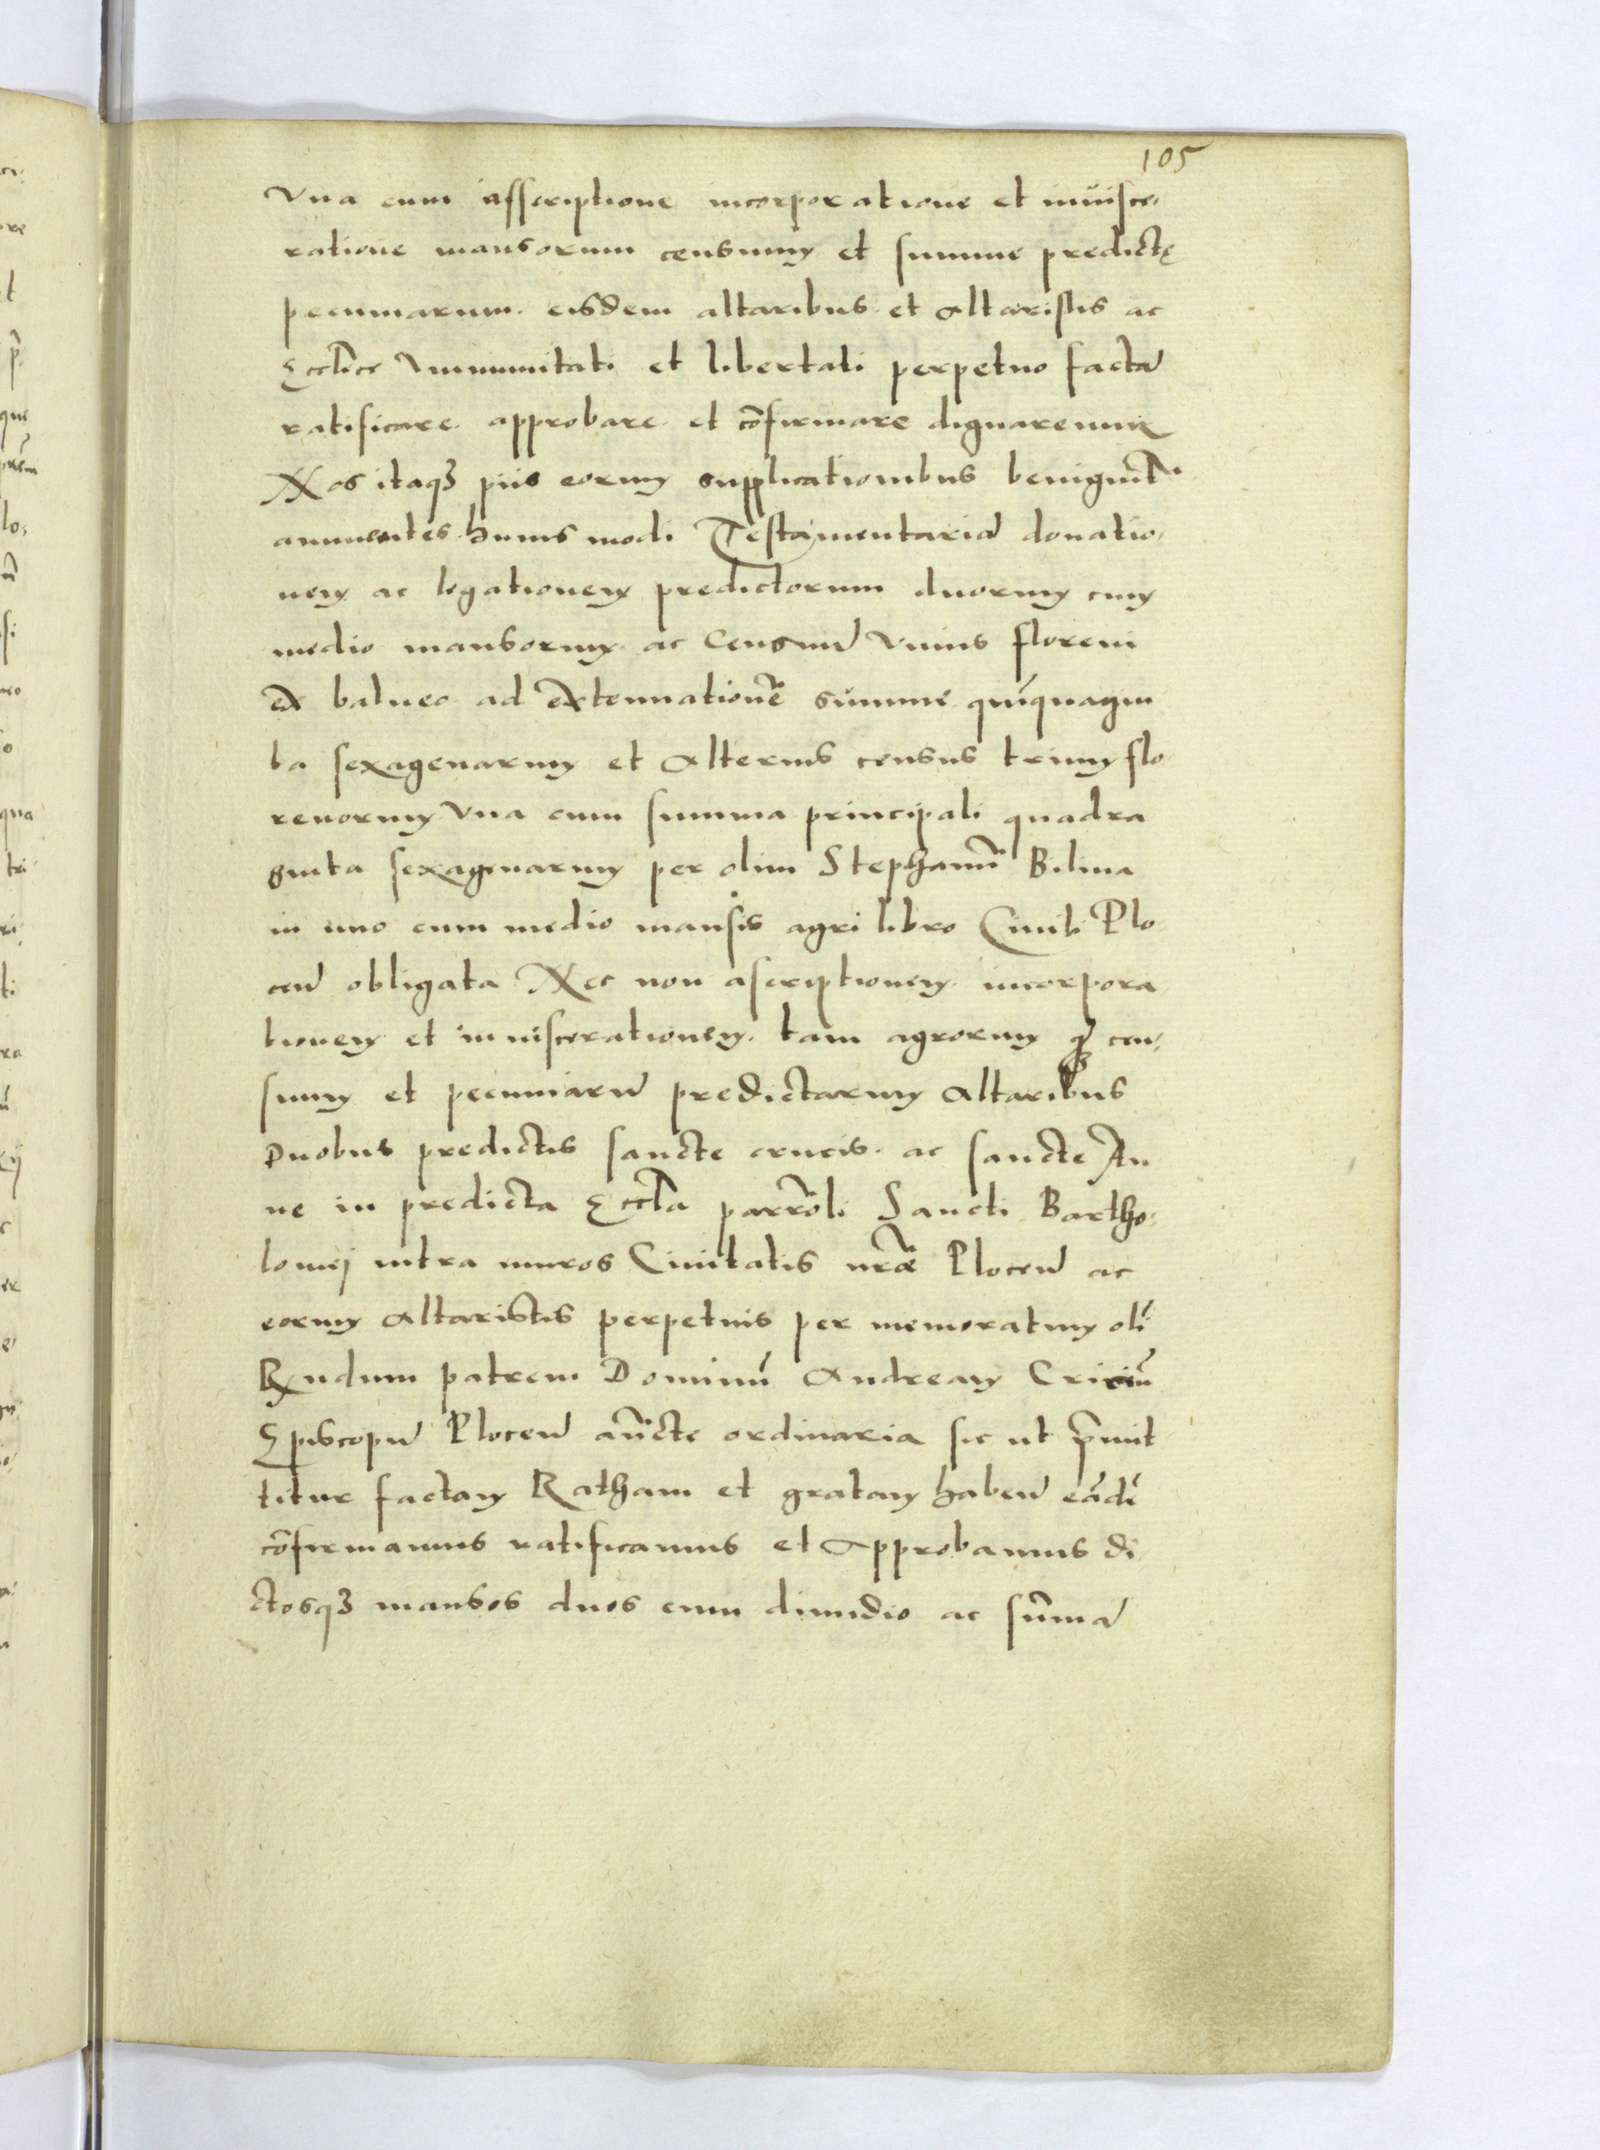 105
Vna cum asscriptione incorporatione et inuisce-
ratione mansorum censuum et summe predictę
pecuniarum. eisdem altaribus. et altaristis ac
Eccl̄ice Immunitati et libertati perpetuo factā
ratificare. approbare. et cōfirmare dignaremur
Nos itaqꝫ piis eorum supplicationibus benignit̄.
annuentes. huius modi Testamentariā donatio-
nem ac legationem predictorum duorum cum
medio mansorum. ac Censuū Vnius floreni
ex balneo ad extenuationē summe quīquagin
ta sexagenarum et alterius census trium flo
renorum Vna cum summa principali quadra
ginta sexagenarum per olim Stephanū Bilina
in uno cum medio mansis agri libro Ciuili Plo
cen̄ obligata Nec non ascriptionem. incorpora
tionem et inuiscerationem. tam agrorum ꝙ cen-
suum et pecuniarū predictarum Altaribus
Duobus predictis sancte crucis. ac sancte An
ne in predicta Eccl̄a parrōli Sancti Bartho-
lomej intra muros Ciuitatis nr̄ae Plocen̄ ac
eorum Altaristis perpetuis per memoratum oli᷈
Rndum patrem Dominū Andream Criciū
Episcopū Plocen̄ auc̄te ordinaria sic ut p̄mit
titur factam Ratham et gratam haben̄ eādē
cōfirmamus ratificamus et Approbamus di
ctosqꝫ mansos duos cum dimidio ac sum̄ā